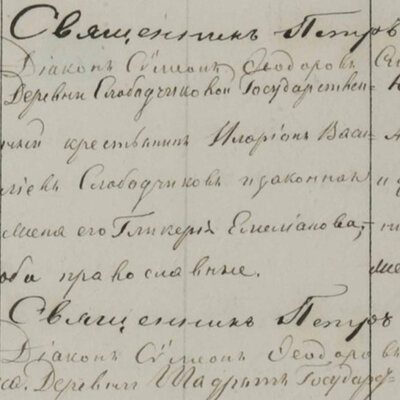 Священникъ Петръ
Діаконъ Сѵмеонъ Ѳеодоровъ
Деревни Слободчиковой Государствен-
крестьянинъ Иларіонъ Васи-
ліевъ Слободчиковъ и законная
жена его Гликерія Емеліанова,
оба православные.
Священникъ Петръ
Діаконъ Сѵмеонъ Ѳеодоровъ
Деревни Шадринъ Государс-